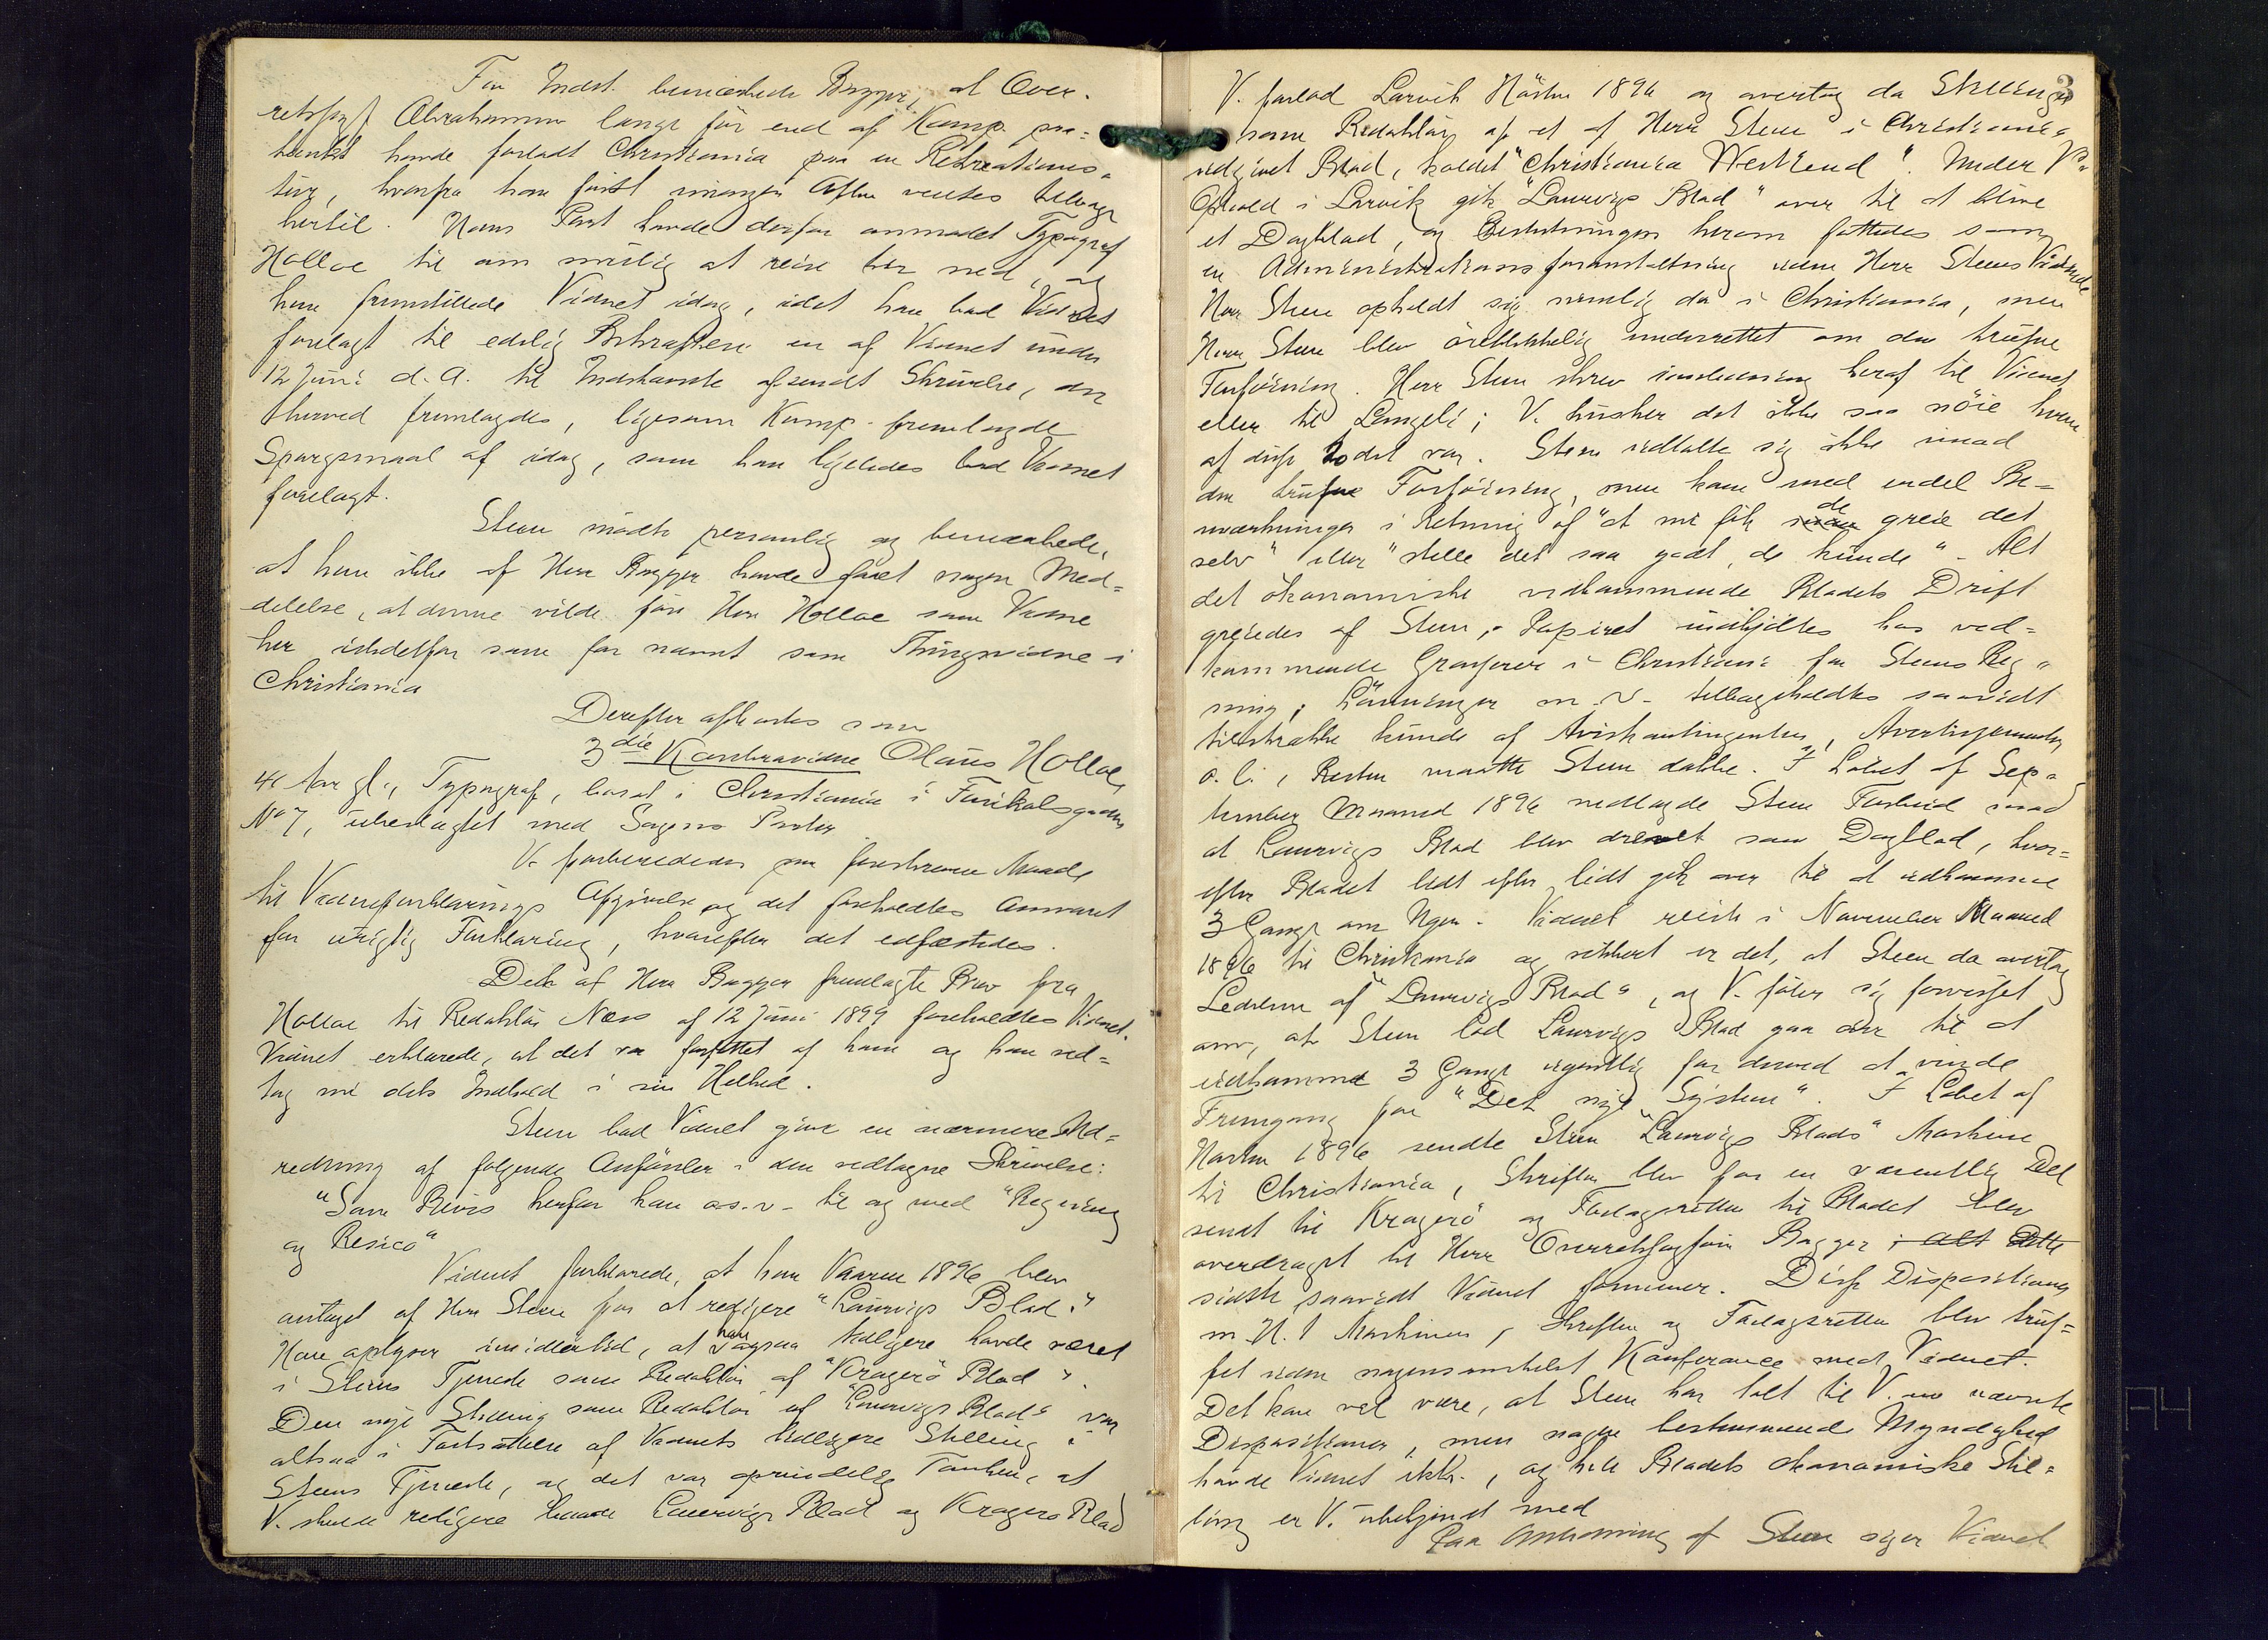 For Indst. bemærkede Bryggr, at Over-
retssagf. Abrahamsen længe før end af Komp. paa-
tænkt havde forladt Christiania paa en Rekreations-
tur, hvorfra han først imorgen Aften ventes tilbage
hertil. Hans Part havde derfor anmodet Typograf
Holloe til om mulig at reise her ned, og
han fremstillede Vidnet idag, idet han bad Vidnet
forelagt til edelig Bekræftelse en af Vidnet under
12 Juni d. A. til Indstævnte afsendt Skrivelse, der
herved fremlagdes, ligesom Komp. fremlagde
Spørgsmaal af idag, som han ligeledes bad Vidnet
forelagt.
Steen mødte personlig og bemærkede,
at han ikke af Herr Brygger havde faaet nogen Med-
delelse, at denne vilde føre Herr Holloe som Vidne
her istedetfor som før nævnt som Thingsvidne i
Christiania
Derefter afhørtes som
3die Kontravidne Olaus Holloe,
41 Aar gl., Typograf, bosat i Christiania i Turikalsgaden
No 7, ubeslægtet med Sagens Parter.
V. forberededes paa foreskreven Maade
til Vidneforklarings Afgivelse og det foreholdtes Ansvaret
for urigtig Forklaring, hvorefter det edfæstedes.
Dek af Herr Brygger fremlagte Brev fra
Holloe til Redaktør Næss af 12 Juni 1899 foreholdtes Vidnet.
Vidnet erklærede, at det var forfattet af ham og han ved-
tog sig dets Indhold i sin Helhed.
Steen bad Vidnet give en nærmere Ud-
redning af følgende Anførsler i den vedtagne Skrivelse:
"Som Bevis herfor kan o.s.v. til og med "Regning
og Resico"
Vidnet forklarede, at han Vaaren 1896 blev
antaget af Herr Steen for at redigere "Laurvigs Blad."
Han oplyser imidlertid, at han ogsaa tidligere havde været
i Steens Tjeneste som Redaktør af "Kragerø Blad".
Den nye Stilling som Redaktør af "Laurvigs Blad" var
altsaa i Fortsættelse af Vidnets tidligere Stilling i
Steens Tjeneste, og det var oprindelig Tanken, at
V. skulde redigere baade Laurvigs Blad og Kragerø Blad
3
V. forlod Larvik Høsten 1896 og overtog da Stillingen
som Redaktør af et af Herr Steen i Christiania
udgivet Blad, kaldet "Christiania Westkend". Under V's
Ophold i Larvik gik "Laurvigs Blad" over til at blive
et Dagblad, og Beslutningen herom fattedes som
en Administrationsforanstaltning uden Herr Steens Vidende
Herr Steen opholdt sig nemlig da i Christiania, men
Herr Steen blev øieblikkelig underrettet om den trufne
Forføining. Herr Steen skrev i anledning heraf til Vidnet
eller til Langeli; V. husker det ikke saa nøie hvem
af disse to det var. Steen udtalte sig ikke imod
den trufne Forføining, men kom med endel Be-
mærkninger i Retning af "at vi fik de greie det
selv" eller "stelle det saa godt de kunde". Alt
det økonomiske vedkommende Bladets Drift
greiedes af Steen, Papiret indkjøbtes hos ved-
kommende Grosserer i Christiania for Steens Reg-
ning; Lønninger m. v. tilbageholdtes saavidt
tilstrække kunde af Aviskontingenten, Avertissementer
o. l., Resten maatte Steen dække. I Løbet af Sep-
tember Maaned 1896 nedlagde Steen Forbud mod
at Laurvigs Blad blev drevet som Dagblad, hvor-
efter Bladet lidt efter lidt gik over til at udkomme
3 Gange om Ugen. Vidnet reiste i November Maaned
1896 til Christiania og sikkert er det, at Steen da overtog
Ledelsen af "Laurvigs Blad", og V. føler sig forvisset
om, at Steen lod Laurvigs Blad gaa over til at
udkomme 3 Gange ugentlig for derved at vinde
Fremgang for "Det nye System". I Løbet af
Høsten 1896 sendte Steen "Laurvigs Blads" Maskine
til Christiania, Skriften blev for en væsentlig Del
sendt til Kragerø og Forlagsretten til Bladet blev
overdraget til Herr Overretssagfører Brygger i alt Dette
sidste saavidt Vidnet fornemmer. Disse Dispositioner
m. H. t. Maskinen, Skriften og Forlagsretten blev truf-
fet uden nogensomhelst Konferance med Vidnet.
Det kan vel være, at Steen har talt til V. om nævnte
Dispositioner, men nogen bestemmende Myndighed
havde Vidnet ikke, og hele Bladets økonomiske Stil-
ling er V. ubekjendt med
Paa Anledning af Steen siger Vidnet